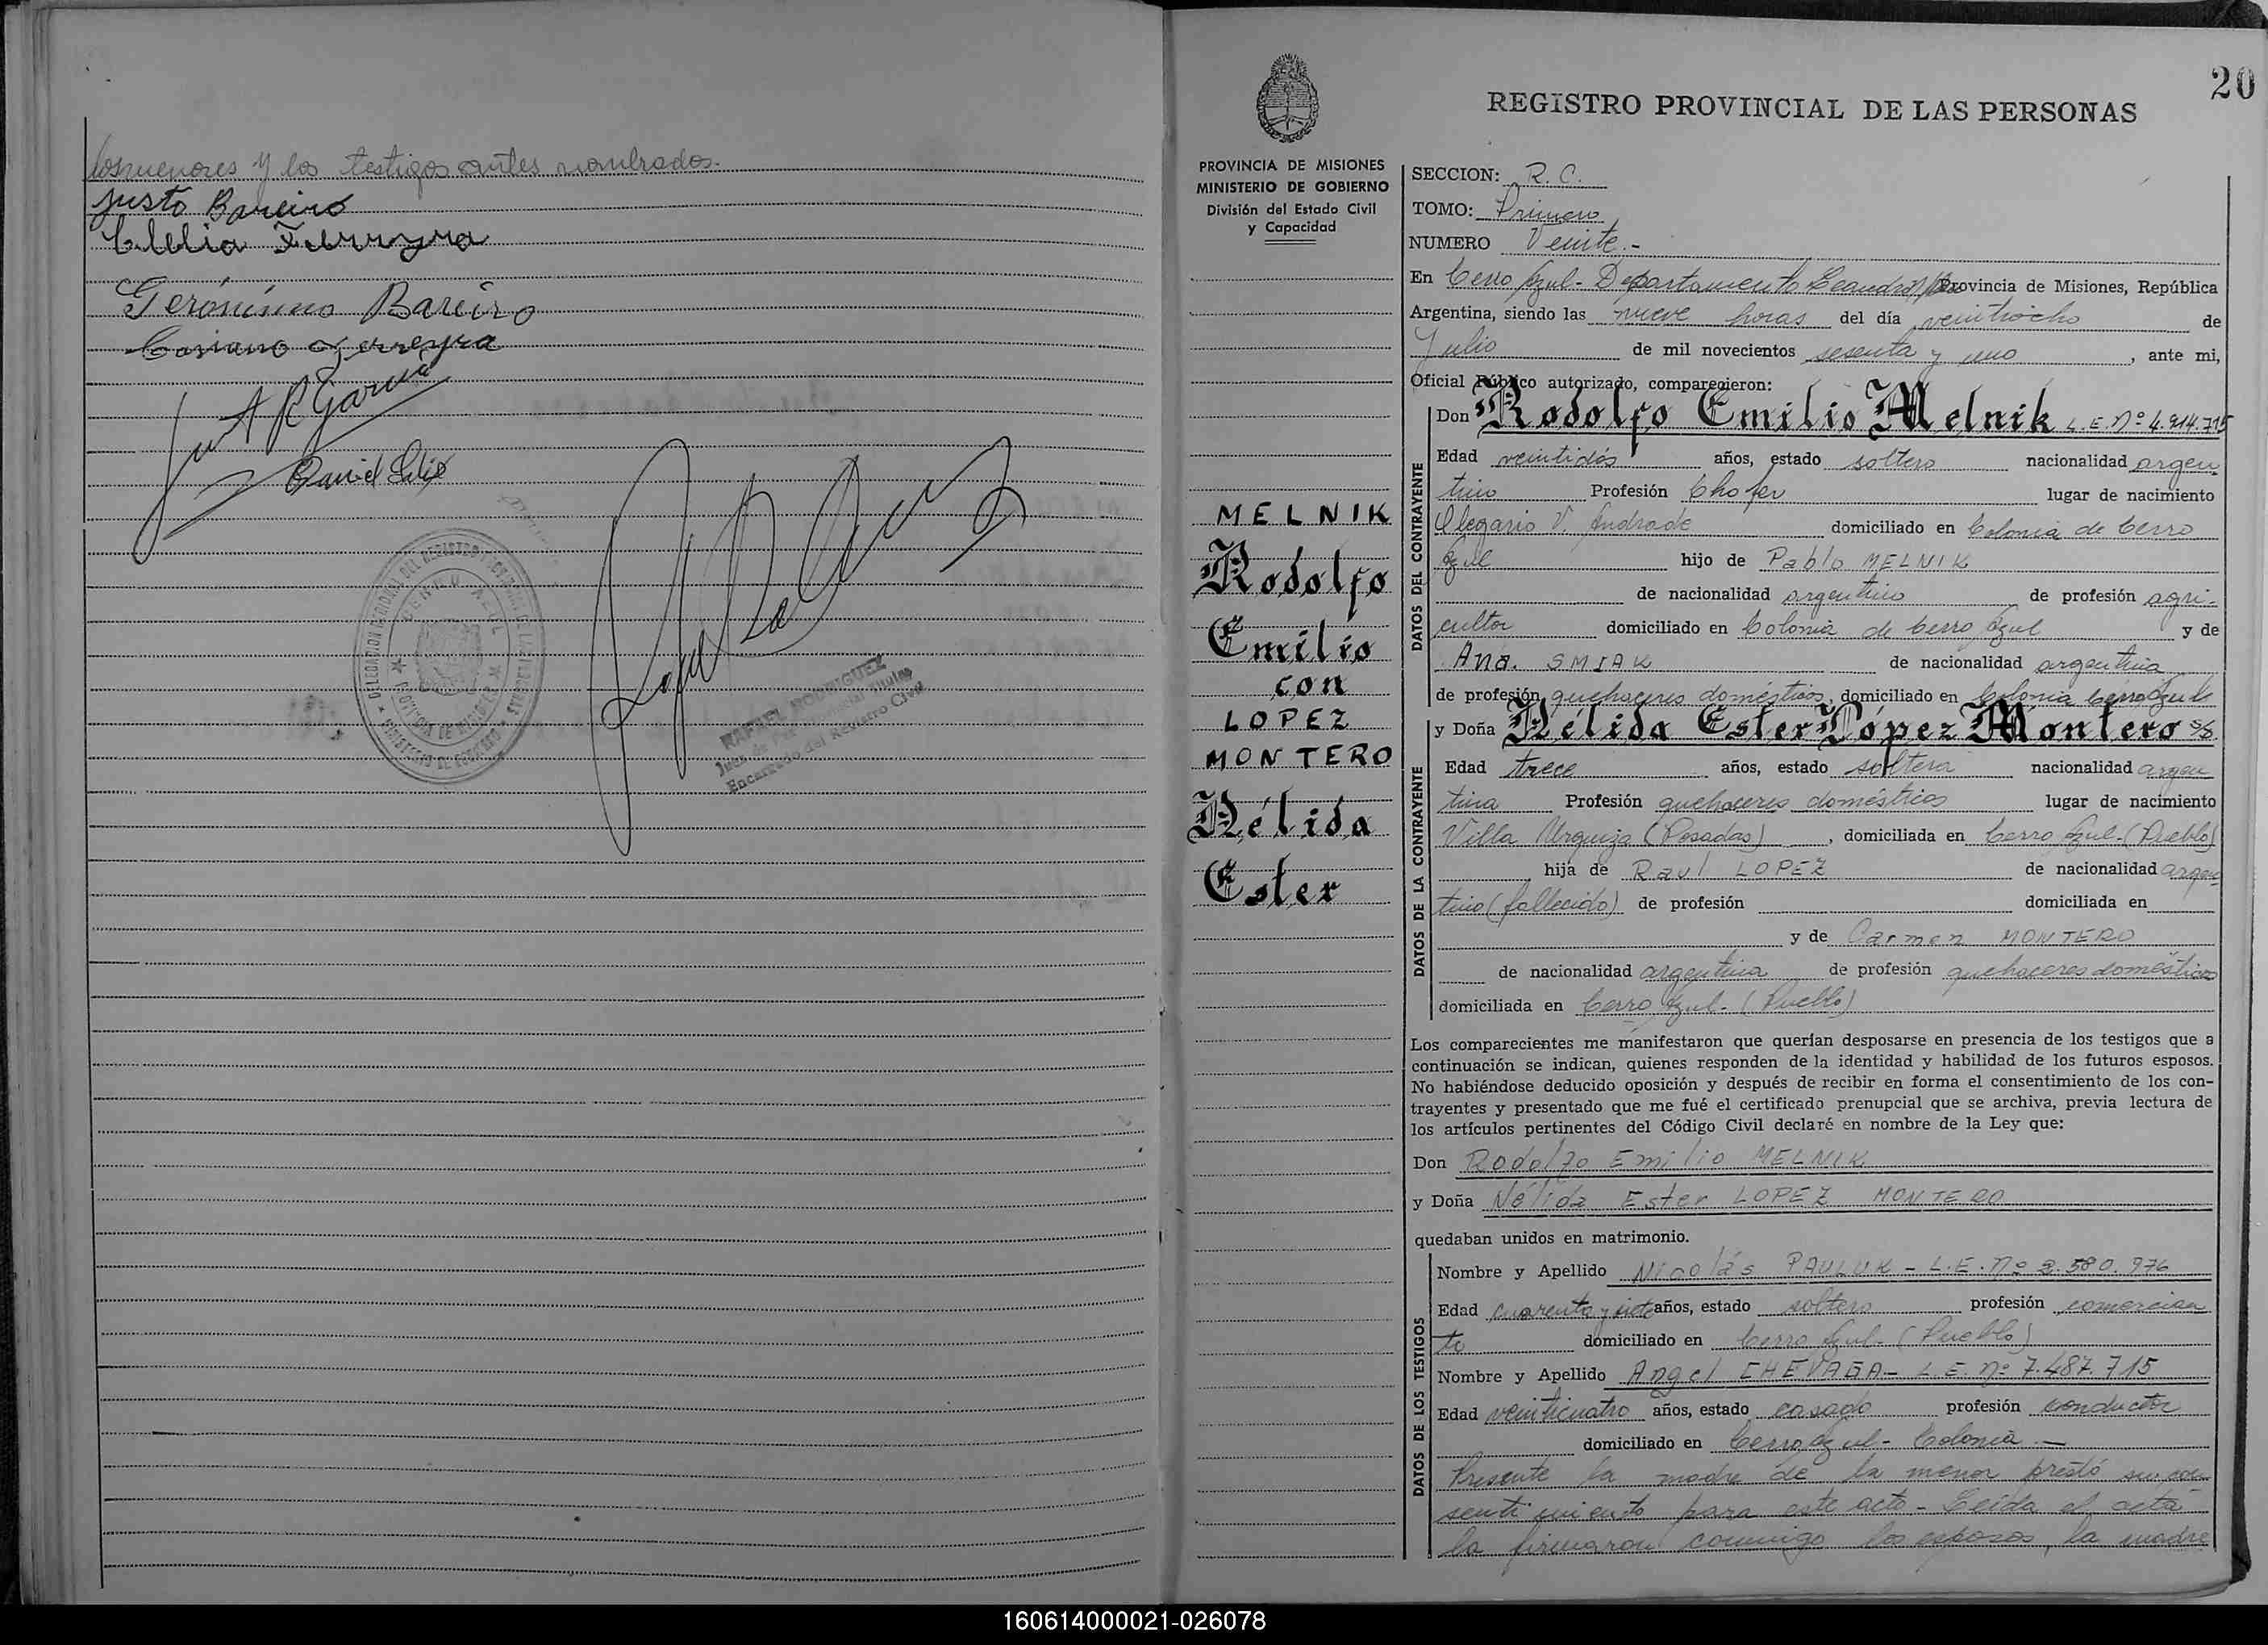 los menores y los testigos antes nombrados.
Justo Bareiro
Clelia Ferreyra
Gerónimo Bareiro
Casiano Ferreyra
A R Garcia
Daniel
CERRO AZUL
RAFAEL RODRIGUEZ
Juez de Paz Titular
Encargado del Registro Civil
20
REGISTRO PROVINCIAL DE LAS PERSONAS
PROVINCIA DE MISIONES
MINISTERIO DE GOBIERNO
División del Estado Civil
y Capacidad
MELNIK
Rodolfo
Emilio
con
LOPEZ
MONTERO
Nélida
Ester
SECCION: R. C.
TOMO: Primero
NUMERO Veinte.-
En Cerro Azul - Departamento Leandro N. Provincia de Misiones, República
Argentina, siendo las nueve horas del día veintiocho de
Julio de mil novecientos sesenta y uno, ante mi,
Oficial Público autorizado, comparecieron:
DATOS DEL CONTRAYENTE
Don Rodolfo Emilio Melnik L.E. Nº 4.914.715
Edad veintidós años, estado soltero nacionalidad argen
tino Profesión Chofer lugar de nacimiento
Olegario V. Andrade domiciliado en Colonia de Cerro
Azul hijo de Pablo MELNIK
de nacionalidad argentino de profesión agri-
cultor domiciliado en Colonia de Cerro Azul y de
Ana. SMIAK de nacionalidad argentina
de profesión quehaceres domésticos, domiciliado en Colonia Cerro Azul
DATOS DE LA CONTRAYENTE
y Doña Nélida Ester López Montero
Edad trece años, estado soltera nacionalidad argen
tina Profesión quehaceres domésticos lugar de nacimiento
Villa Urquiza (Posadas), domiciliada en Cerro Azul-(Pueblo)
hija de Raul LOPEZ de nacionalidad argen
tino (fallecido) de profesión domiciliada en
y de Carmen MONTERO
de nacionalidad argentina de profesión quehaceres domésticos
domiciliada en Cerro Azul - (Pueblo)
Los comparecientes me manifestaron que querían desposarse en presencia de los testigos que a
continuación se indican, quienes responden de la identidad y habilidad de los futuros esposos.
No habiéndose deducido oposición y después de recibir en forma el consentimiento de los con-
trayentes y presentado que me fué el certificado prenupcial que se archiva, previa lectura de
los artículos pertinentes del Código Civil declaré en nombre de la Ley que:
Don Rodolfo Emilio MELNIK
y Doña Nélida Ester LOPEZ MONTERO
quedaban unidos en matrimonio.
DATOS DE LOS TESTIGOS
Nombre y Apellido Nicolás PAULUK - L.E. Nº 2.580.976
Edad cuarenta y siete años, estado soltero profesión comercian
te domiciliado en Cerro Azul - (Pueblo)
Nombre y Apellido Angel CHEVAGA - L.E. Nº 7.487.715
Edad veinticuatro años, estado casado profesión conductor
domiciliado en Cerro Azul - Colonia -
Presente la madre de la menor prestó su con
sentimiento para este acto - Leída el acta
la firmaron conmigo los esposos, la madre
160614000021-026078